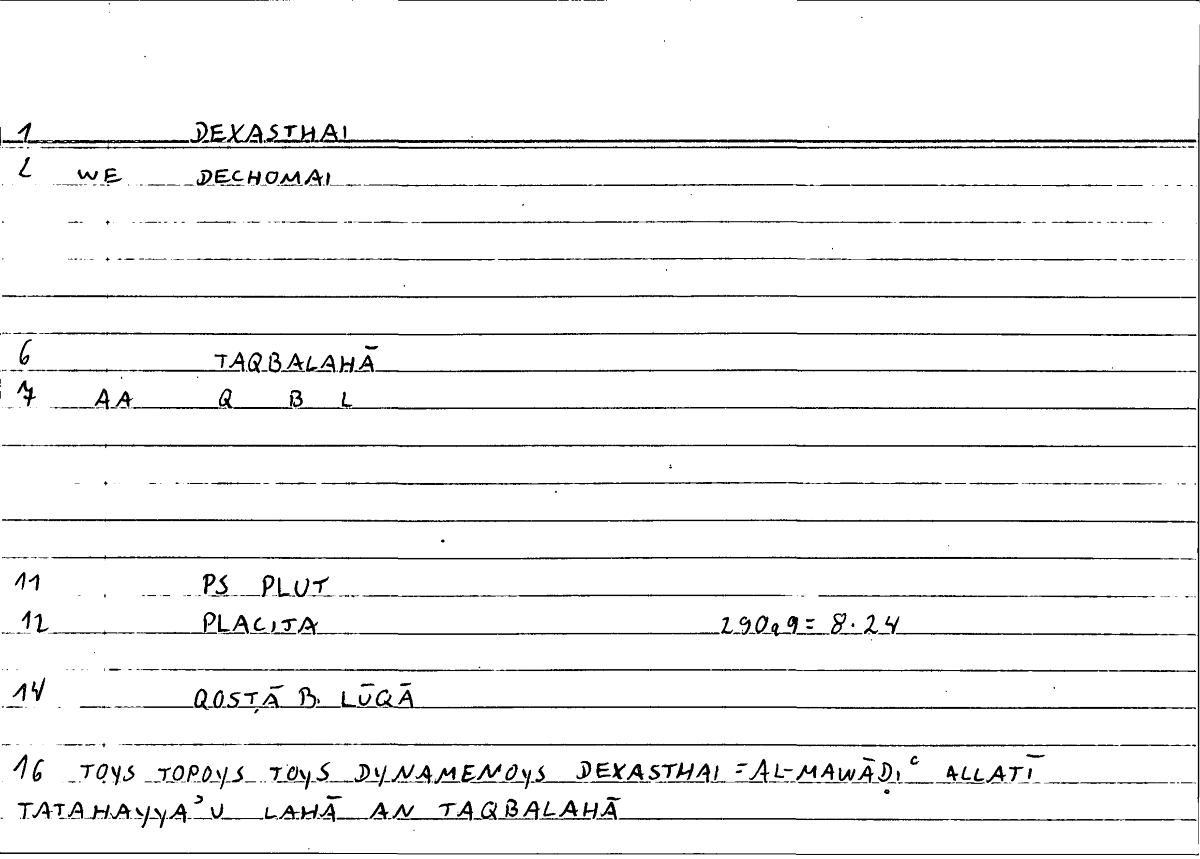 1 DEXASTHAI
2 WE DECHOMAI
6 TAQBALAHĀ
7 AA Q B L
11 PS PLUT
12 PLACITA 290a9= 8.24
14 QOSṬĀ B. LŪQĀ
16 TOYS TOPOYS TOYS DYNAMENOYS DEXASTHAI = AL-MAWĀḌIʿ ALLATĪ
TATAHAYYAʾU LAHĀ AN TAQBALAHĀ